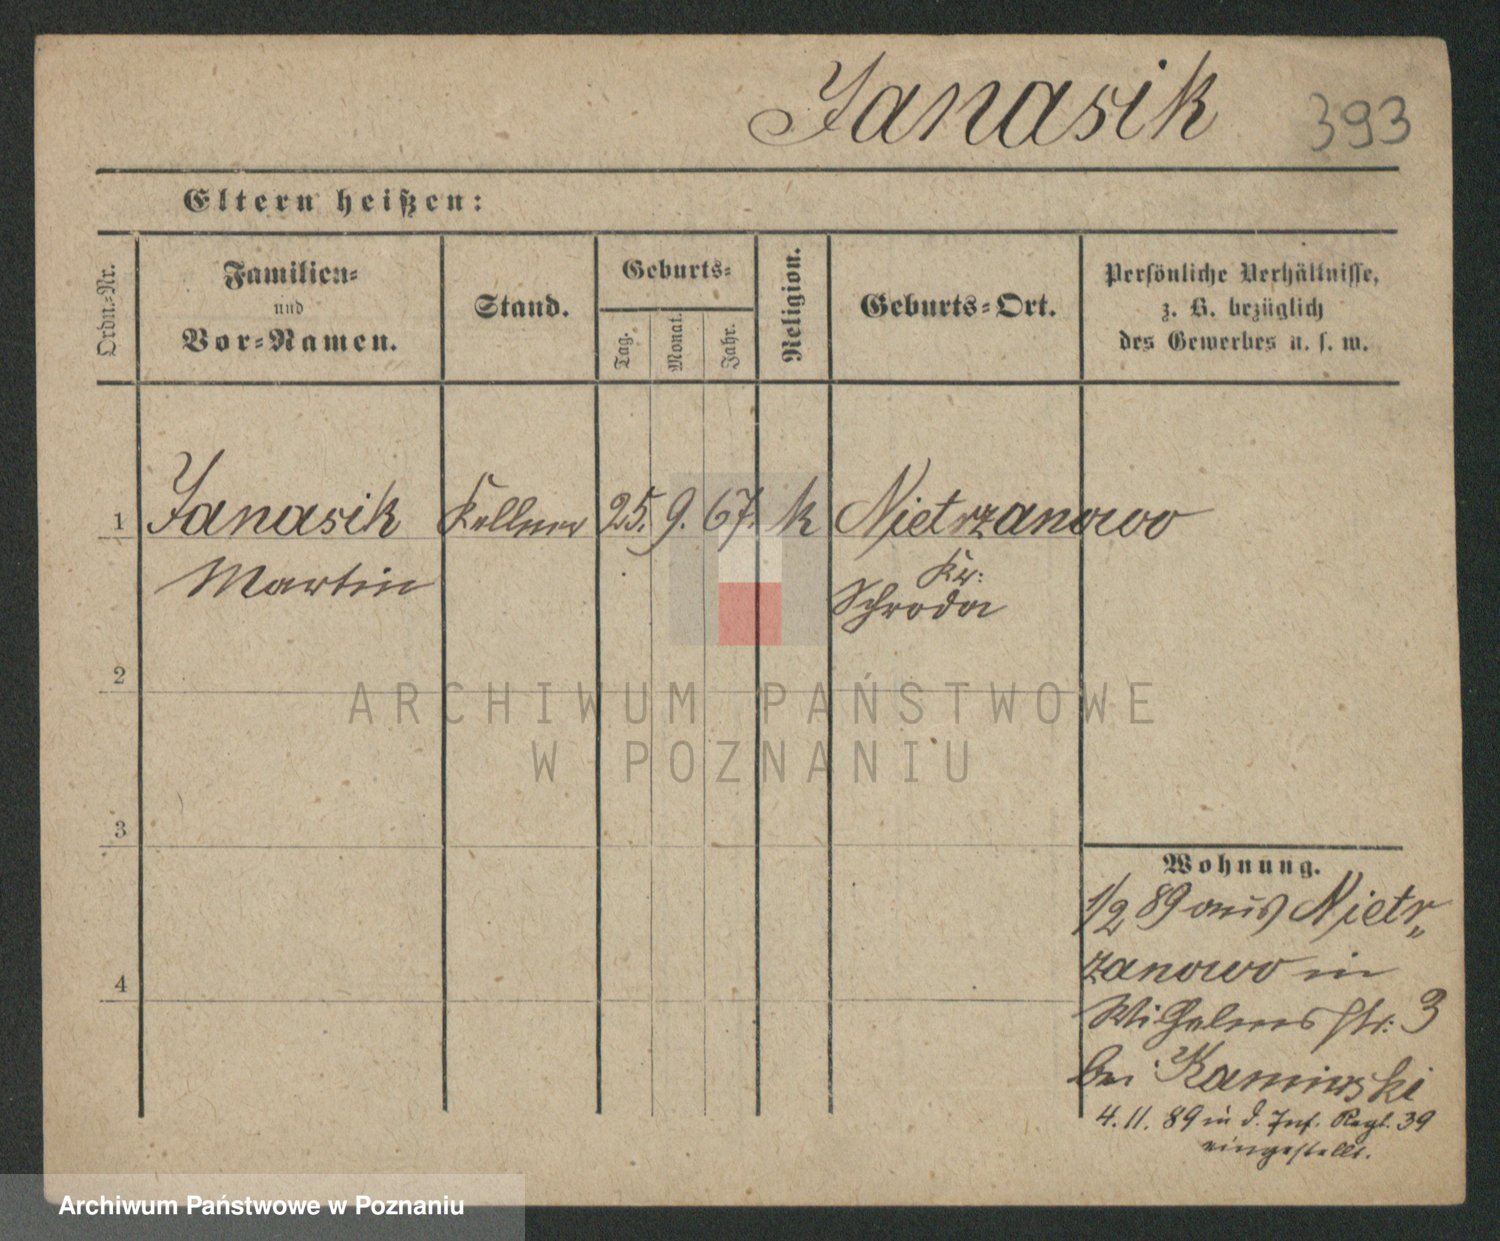 Janasik 393
Eltern heißen:
Ordn.-Nr.
Familien-
und
Vor-Namen.
Stand.
Geburts-
Tag.
Monat.
Jahr.
Religion.
Geburts-Ort.
Persönliche Verhältnisse,
z. B. bezüglich
des Gewerbes u. s. w.
1 Janasik Kellner 25. 9. 67. k Nietrzanowo
Martin
Kr:
Schroda
2
3
4
Wohnung.
1/2 89 aus Nietr„
zanowo in
Wilhelmsstr: 3
bei Kaminski
4. 11. 89 in d. Inf. Regt. 39
eingestellt.
ARCHIWUM PAŃSTWOWE
W POZNANIU
Archiwum Państwowe w Poznaniu